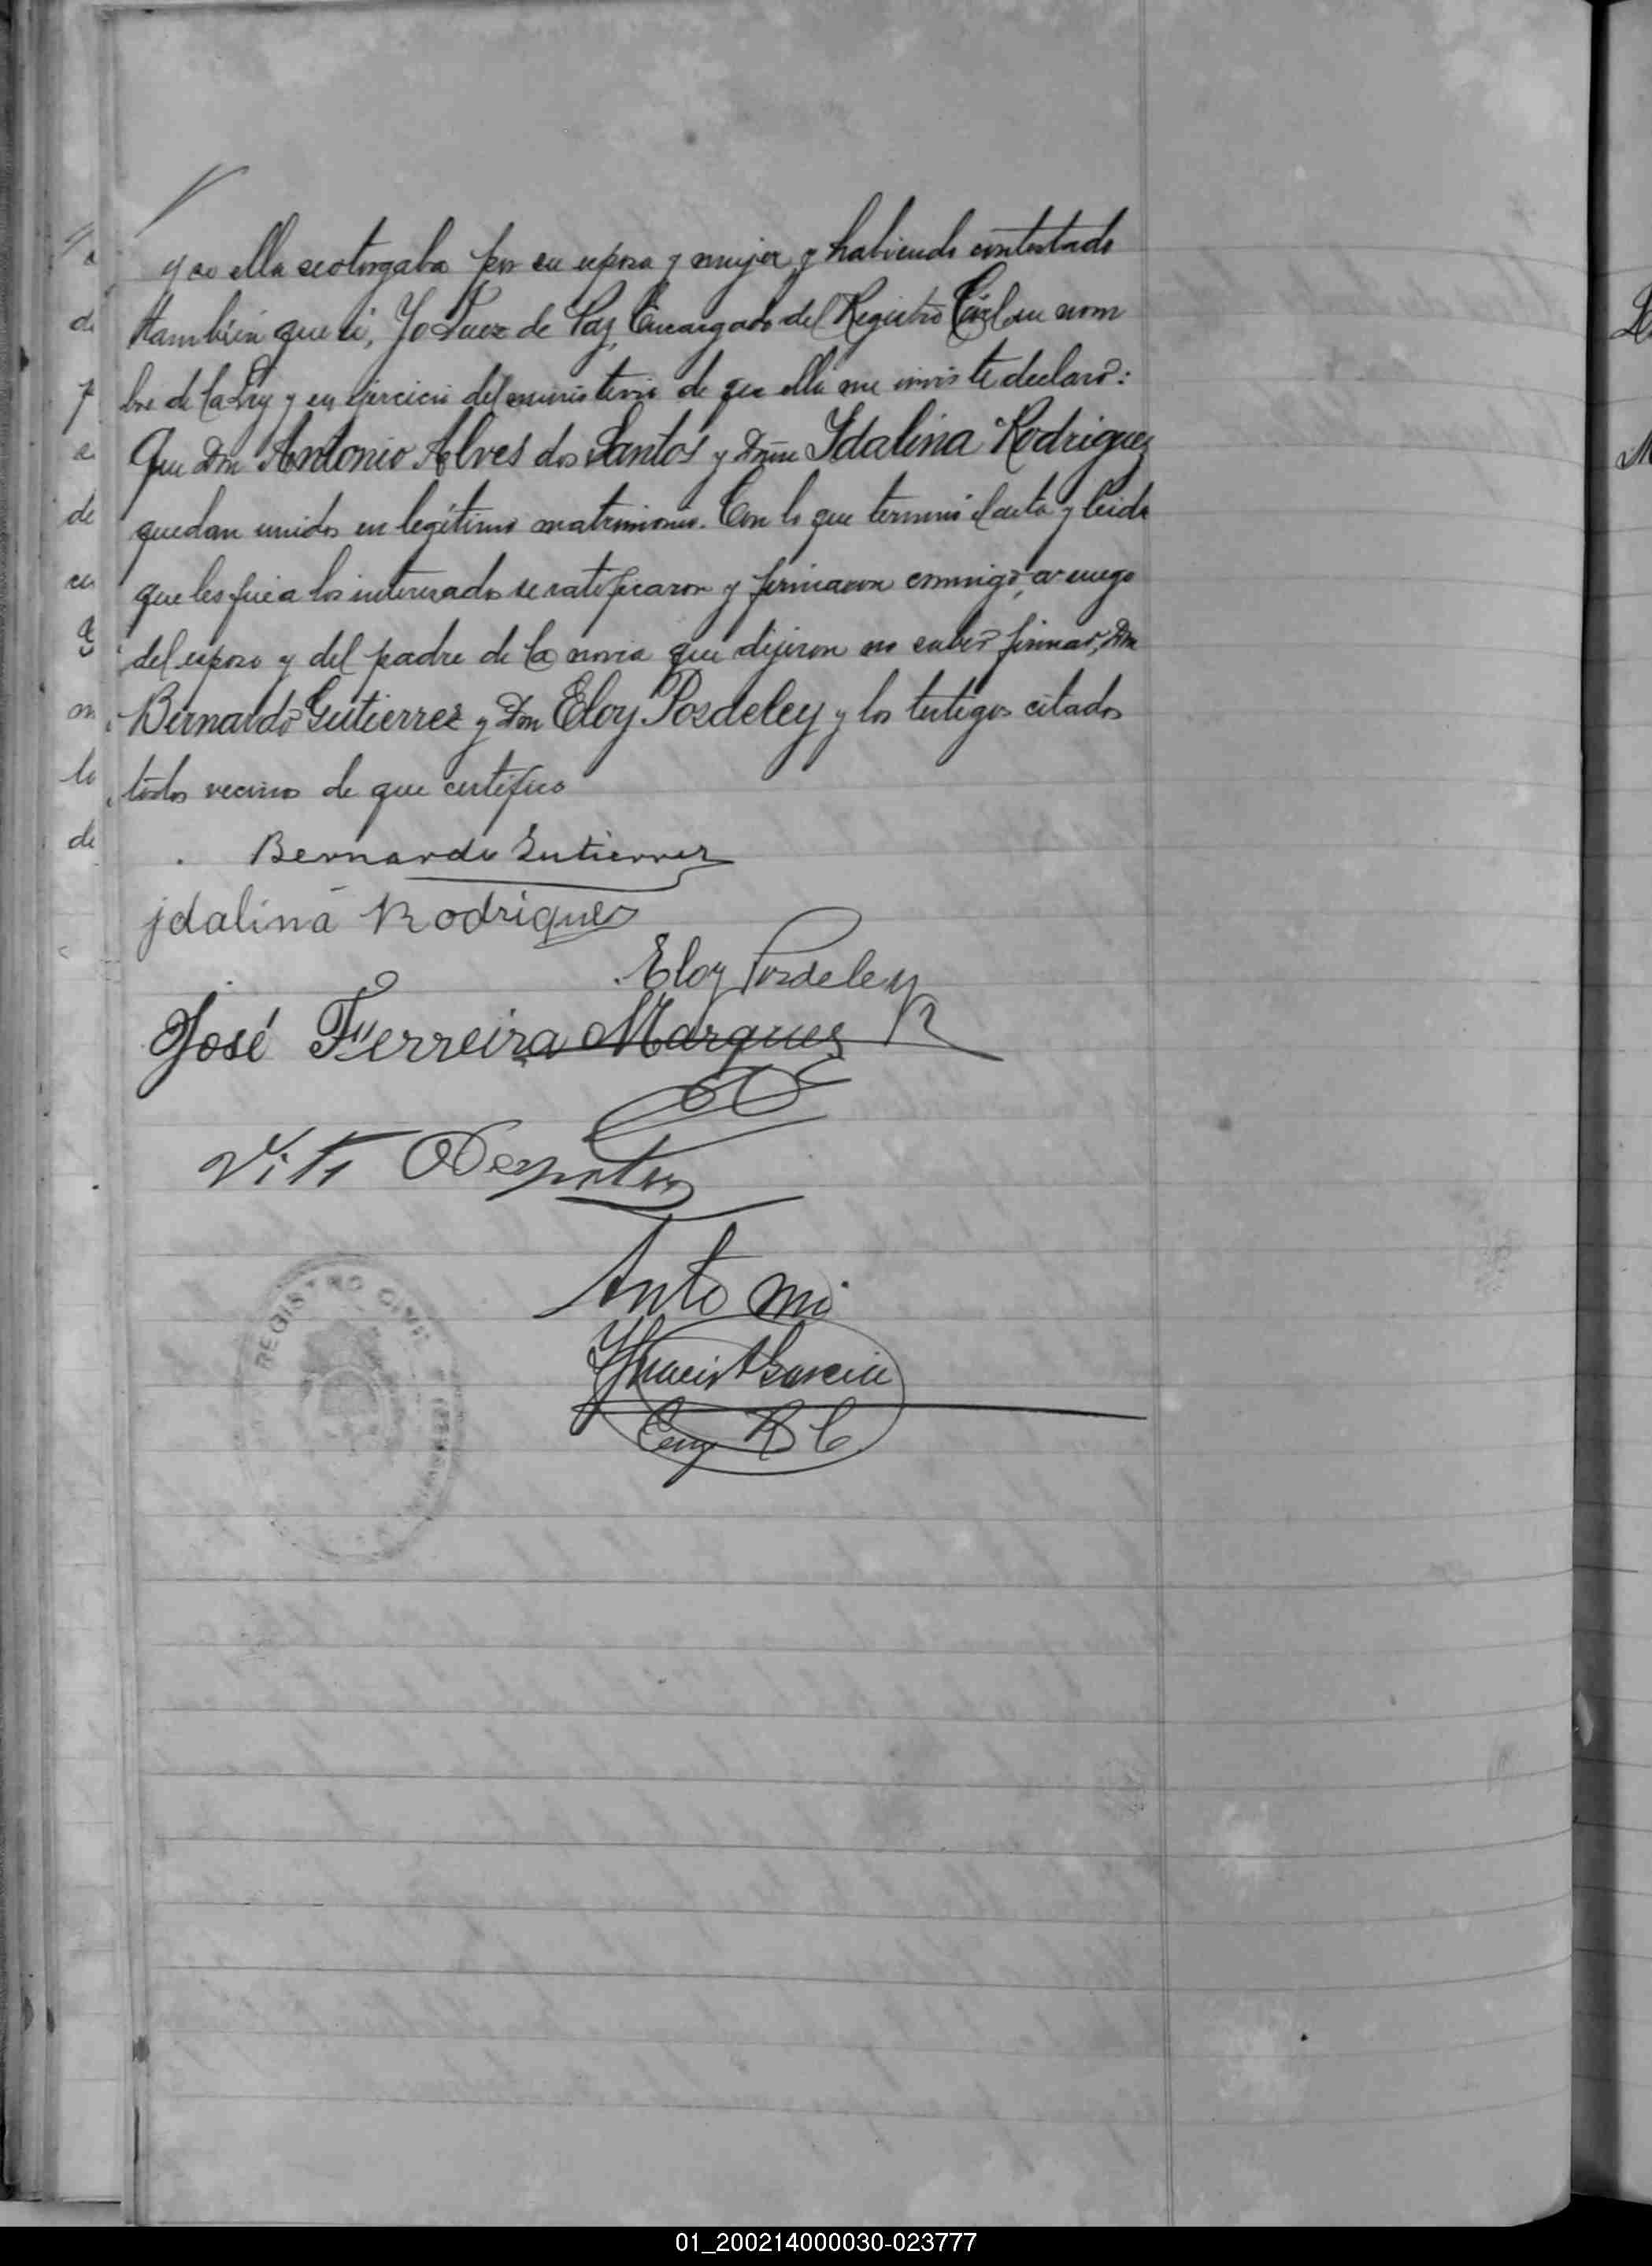 y se ella se otorgaba por su esposa y mujer y habiendo contestado
tambien que si, Yo Juez de Paz, Encargado del Registro Civil en nom
bre de la Ley y en ejercicio del ministerio de que ella me inviste declaro:
Que Don Antonio Alves dos Santos y Doña Idalina Rodriguez
quedan unidos en legítimo matrimonio. Con lo que terminó el acta y leida
que les fué a los interesados se ratificaron y firmaron conmigo, a ruego
del esposo y del padre de la novia que dijeron no saber firmar, Don
Bernardo Gutierrez y Don Eloy Posdeley y los testigos citados
todos vecinos de que certifico
Bernardo Gutierrez
jdalina Rodrigues
Eloy Posdeley
José Ferreira Marques
Vito
Ante mi
Garcia
Enc R C
REGISTRO CIVIL
01_200214000030-023777